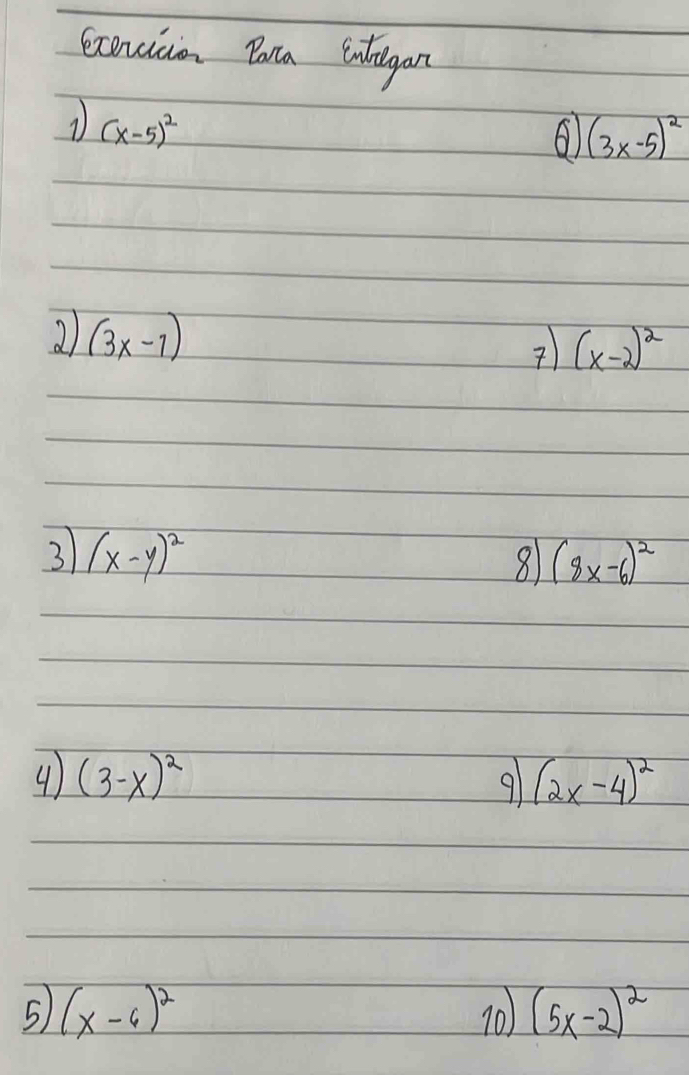 Exercícios Para Entregar
1) (x-5)²
6) (3x-5)²
2) (3x-1)
7) (x-2)²
3) (x-y)²
8) (8x-6)²
4) (3-x)²
9) (2x-4)²
5) (x-6)²
10) (5x-2)²